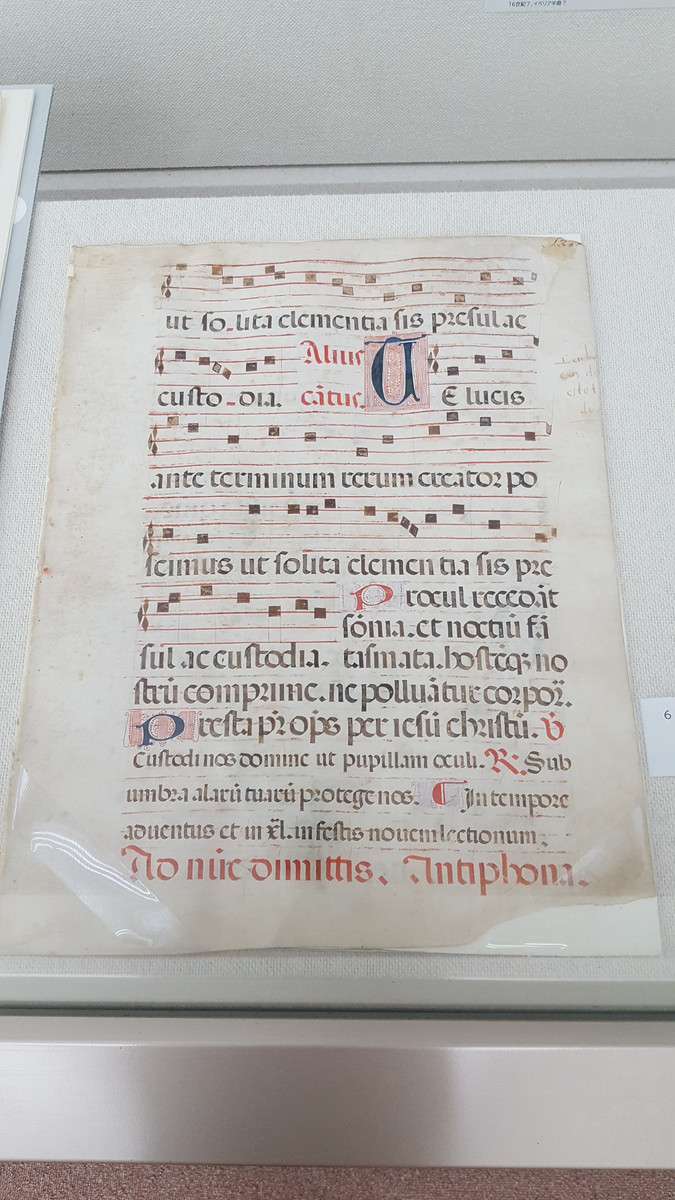 16世紀?、イベリア半島?
ut so-lita clementia sis presul ac
Alius
custo-dia. cãtus. T E lucis
ante terminum rerum creator po
scimus ut solita clemen tia sis pre
Procul recedãt
sõnia. et noctiũ fã
sul ac custodia. tasmata. hostẽqz no
strũ comprime. ne polluãtur corpoȓ.
Presta pr̃ op̃s per iesũ christũ. V̾
Custodi nos domine ut pupillam oculi. R. Sub
umbra alarũ tuarũ protege nos. In tempore
aduentus et in xl. in festis nouem lectionum.
Ad nũc dimittis. Antiphona.
6